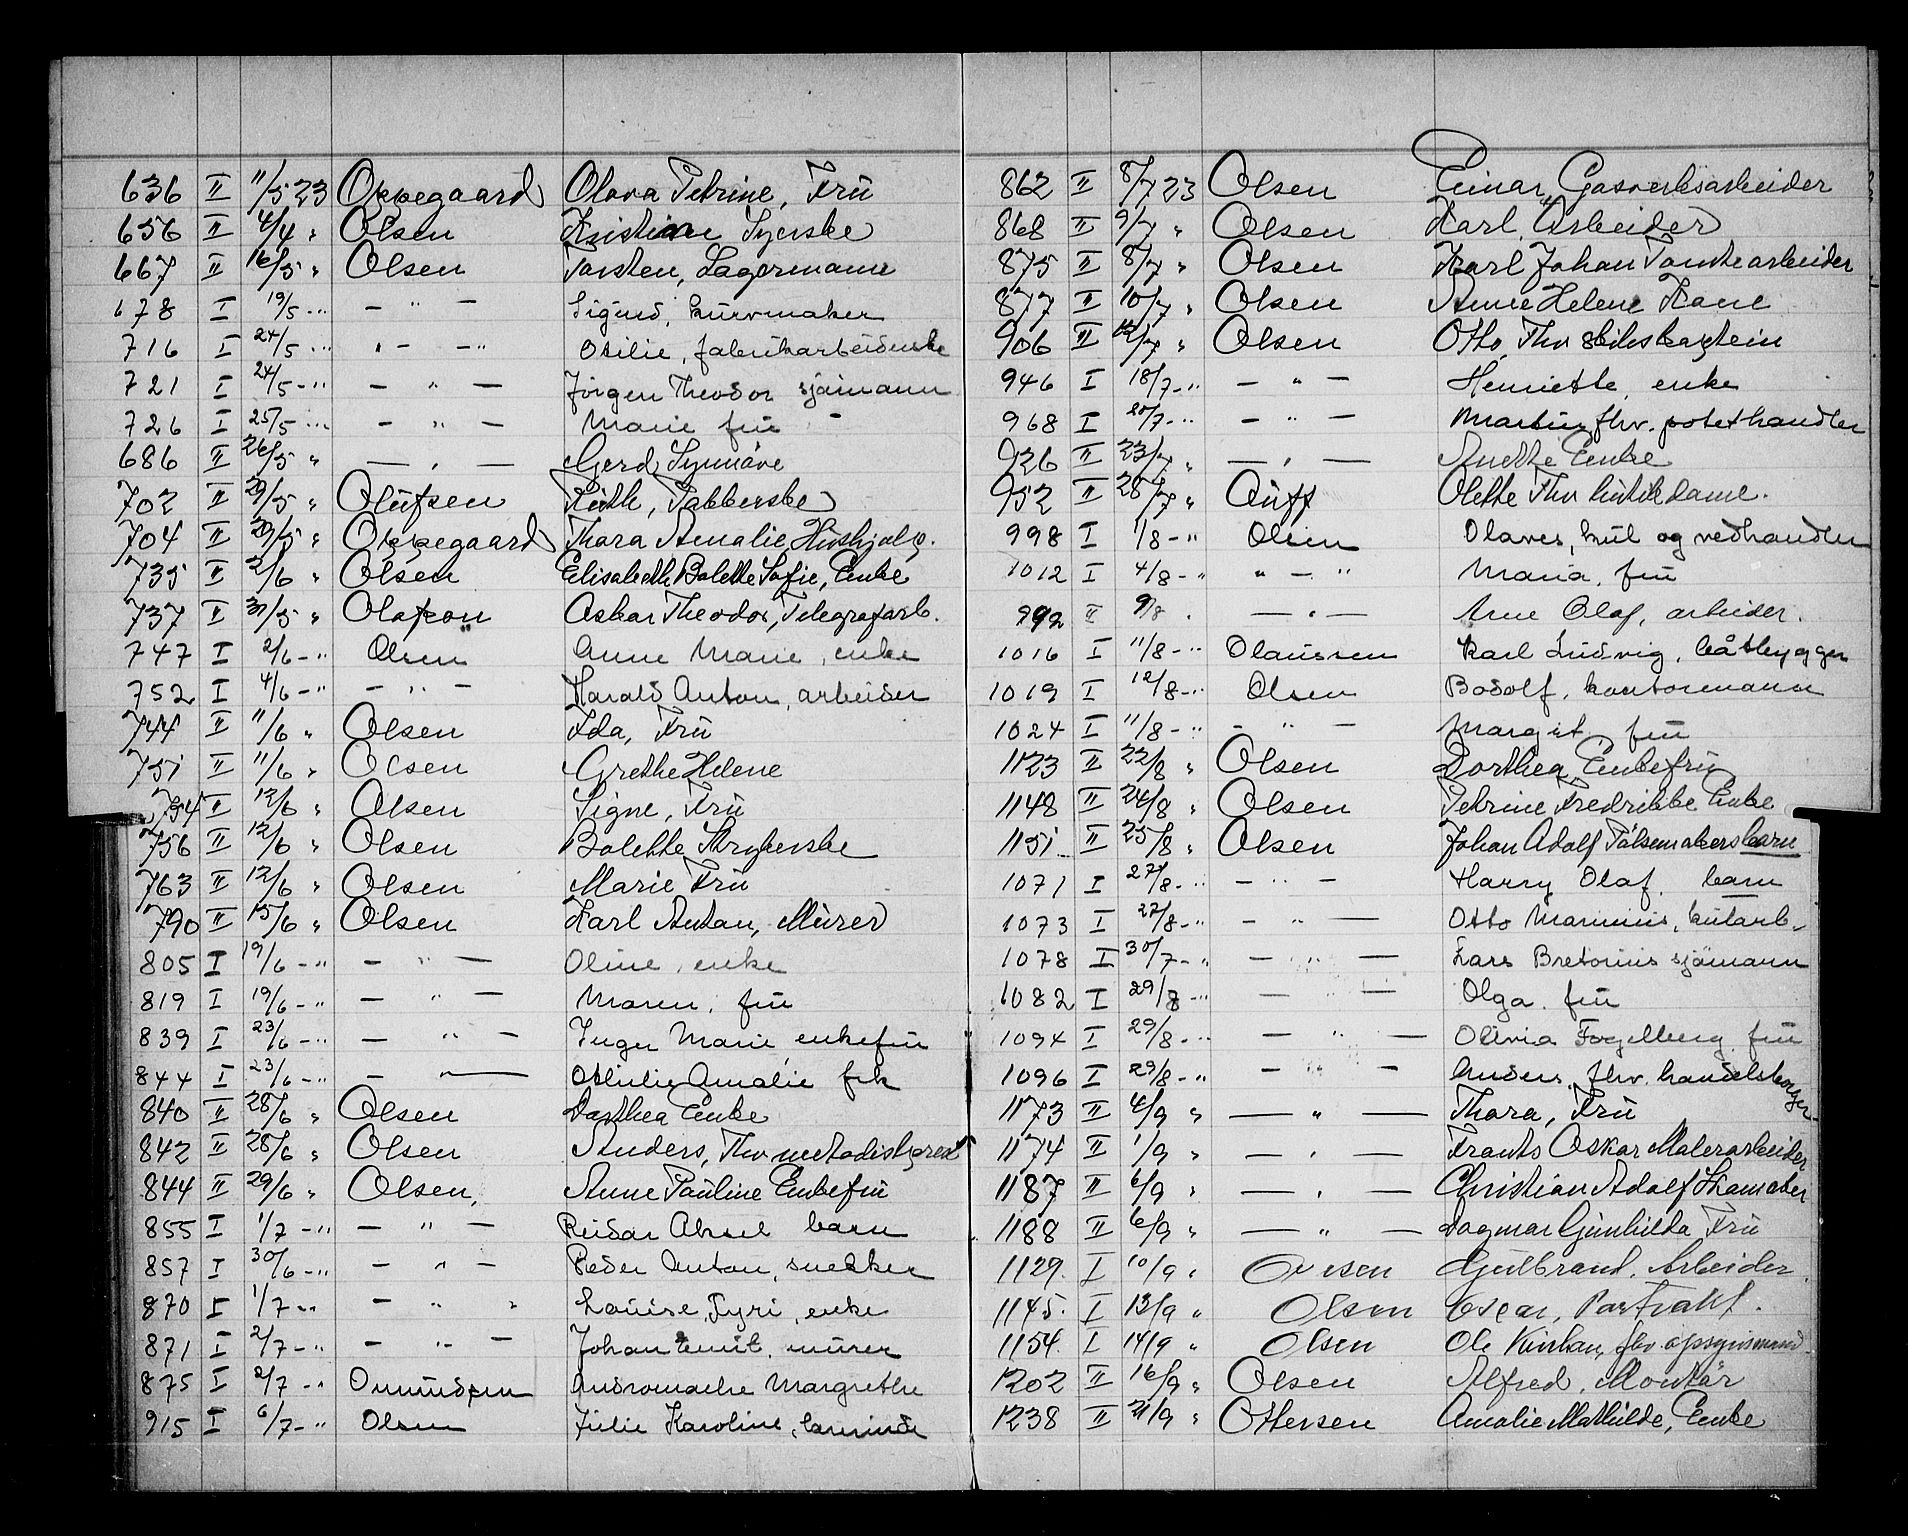 636 II 11/5 23 Oppegaard Olava Petrine, Frü
656 II 4/4 " Olsen Kristiane Syerske
667 II 16/5 " Olsen Torsten, Lagermann
678 I 19/5 -"- - " - Sigurd, kurvmaker
716 I 24/5 -"- " - -" Otilie, fabrikarbeiderske
721 I 24/5 -"- - " - Jörgen Theodor sjömann
726 I 25/5 -"- - " - Marie frü
686 II 26/5 " - " - Gerd Synnöve
702 II 29/5 " Olüfsen Rüth, Pakkerske
704 II 30/5 " Oppegaard Thora Amalie Hüshjelp.
735 II 2/6 " Olsen Elisabeth Bolette Sofie, Enke
737 II 31/5 " Olafson Oskar Theodor, Telegrafarb.
747 I 2/6 -"- Olsen Anne Marie, enke
752 I 4/6 -"- - " - Harald Anton, arbeider
744 II 11/6 " Olsen Ida, Frü
751 II 11/6 " Olsen Grethe Helene
754 II 12/6 " Olsen Signe, Frü
756 II 12/6 " Olsen Bolette Strykerske
763 II 12/6 " Olsen Marie Frü
790 II 15/6 " Olsen Karl Anton, Mürer
805 I 19/6 -"- - " - Oline, enke
819 I 19/6 -"- - " - Maren, frü
839 I 23/6 -"- - " - Inger Marie, enkefrü
844 I 23/6 -"- - " - Othilie Amalie frk
840 II 28/6 " Olsen Dorthea Enke
842 II 28/6 " Olsen Anders, Fhv metodistprest
844 II 29/6 " Olsen, Anne Pauline Enkefrü
855 I 1/7 -"- - " - Reidar Aksel barn
857 I 30/6 -"- - " - Peder Anton, snekker
870 I 1/7 -"- - " " Louise, Fyri, enke
871 I 2/7 -"- - " - Johan Emil, mürer
875 I 2/7 -"- Omündsen Andromache Margrethe
915 I 6/7 -"- Olsen Jülie Karoline, lærerinde
862 II 8/7 23 Olsen Einar, Gasverksarbeider
868 II 9/7 " Olsen Karl, Arbeider
875 II 8/7 " Olsen Karl Johan Tomtearbeider
877 II 10/7 " Olsen Anne Helene Kone
906 II 12/7 " Olsen Otto, Fhv skibskaptein
946 I 18/7 -"- - " - Henriette, enke
968 I 20/7 -"- - " - Martin fhv. potethandler
926 II 23/7 " - " - Anette Enke
952 II 28/7 " Aüff Olette Fhv bütikdame.
998 I 1/8 -"- Olsen Olaves, kul og vedhandler
1012 I 4/8 -"- " - " Maria, frü
992 II 9/8 " - " - Arne Olaf, arbeider.
1016 I 11/8 -"- Olaüssen Karl Ludvig, båtbygger
1019 I 12/8 -"- Olsen Bodolf, kontormann
1024 I 11/8 -"- - " - Margit, frü
1123 II 22/8 " Olsen Dorthea, Enkefrü
1148 II 24/8 " Olsen Petrine Fredrikke Enke
1151 II 25/8 " Olsen Johan Adolf Pølsemakersbarn
1071 I 27/8 -"- - " - Harry Olaf, barn
1073 I 27/8 -"- - " - Otto Marinius, külarb.
1078 I 30/7 -"- - " - Lars Bretonius sjömann
1082 I 29/8 -"- - " - Olga, frü
1094 I 29/8 -"- - " - Olivia Fogelberg frü
1096 I 29/8 -"- - " - Anders, fhv. handelsborger
1173 II 4/9 " - " - Thora, Frü
1174 II 1/9 " - " - Frants Oskar Malerarbeider
1187 II 6/9 " - " - Christian Adolf Skomaker
1188 II 6/9 " - " - Dagmar Günhilda Frü
1129. I 10/9 " Olsen Gulbrand, Arbeider.
1145. I 13/9 " Olsen Oscar,
1154. I 14/9 " Olsen Ole fhv. opsynsmand.
1202 II 16/9 " Olsen Alfred, Montör
1238 II 21/9 " Ottersen Amalie Mathilde, Enke